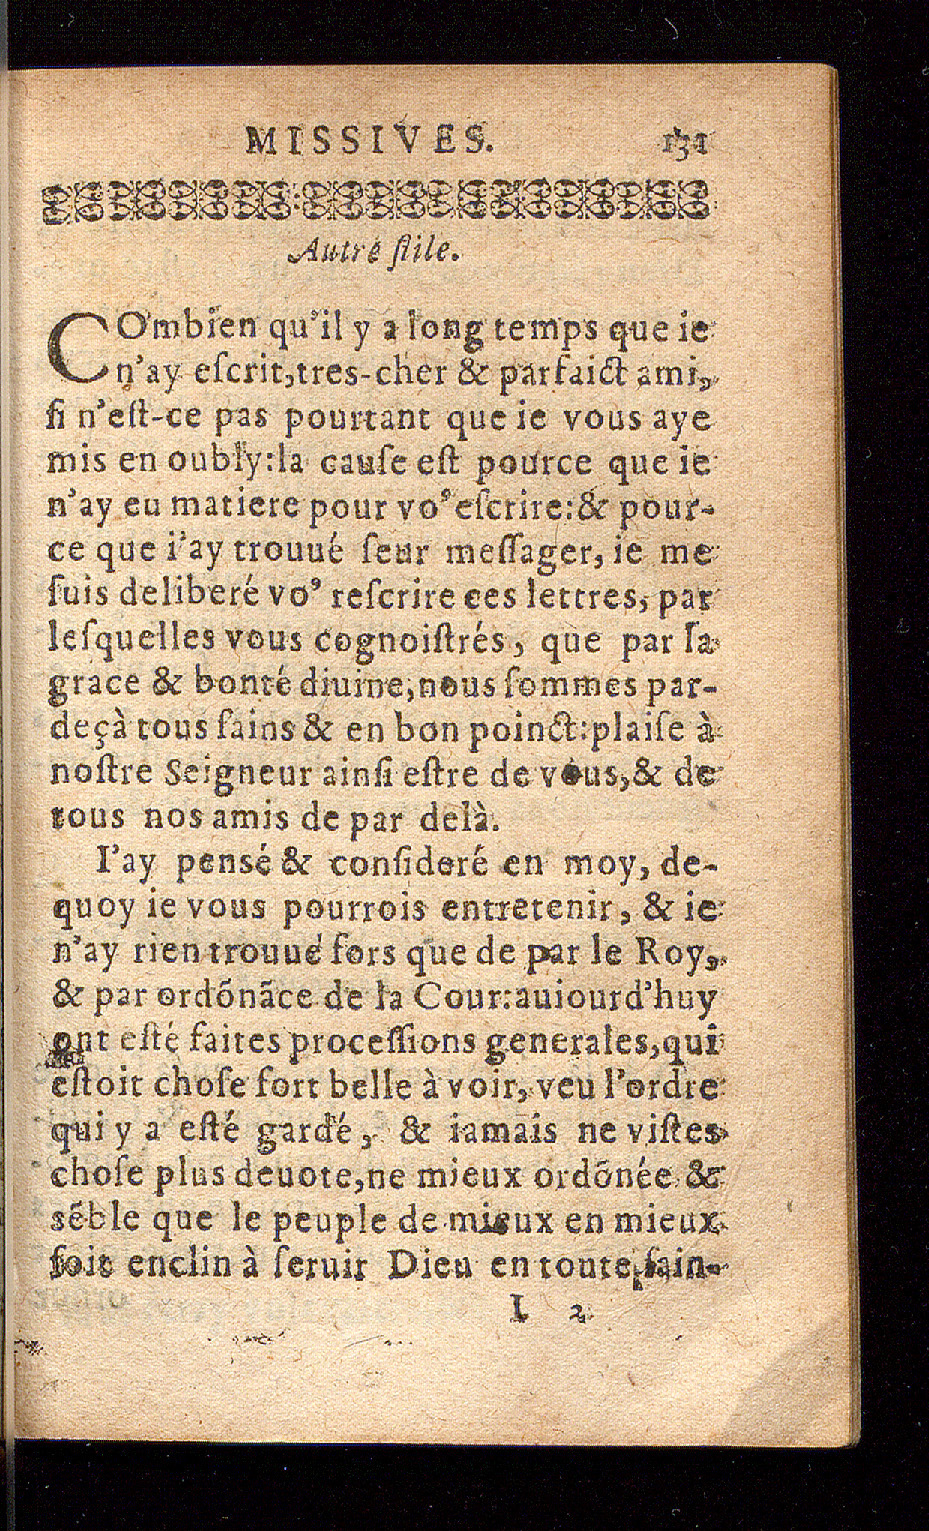 MISSIVES. 131
Autre ſtile.
COmbien qu'il y a long temps que ie
n'ay eſcrit,tres-cher & parfaict ami,
ſi n'eſt-ce pas pourtant que ie vous aye
mis en oubly:la cauſe eſt pource que ie
n'ay eu matiere pour vo⁹ eſcrire:& pour-
ce que i'ay trouué ſeur meſſager, ie me
ſuis deliberé vo⁹ reſcrire ces lettres, par
leſquelles vous cognoiſtrés, que par la
grace & bonté diuine,nous ſommes par-
deçà tous ſains & en bon poinct:plaiſe à
noſtre Seigneur ainſi eſtre de vous,& de
tous nos amis de par delà.
I'ay pensé & conſideré en moy, de-
quoy ie vous pourrois entretenir, & ie
n'ay rien trouué fors que de par le Roy,
& par ordõnãce de la Cour:auiourd'huy
ont eſté faites proceſſions generales,qui
eſtoit choſe fort belle à voir, veu l'ordre
qui y a eſté gardé, & iamais ne viſtes
choſe plus deuote,ne mieux ordõnée &
sẽble que le peuple de mieux en mieux
ſoit enclin à ſeruir Dieu en toute ſain-
I 2